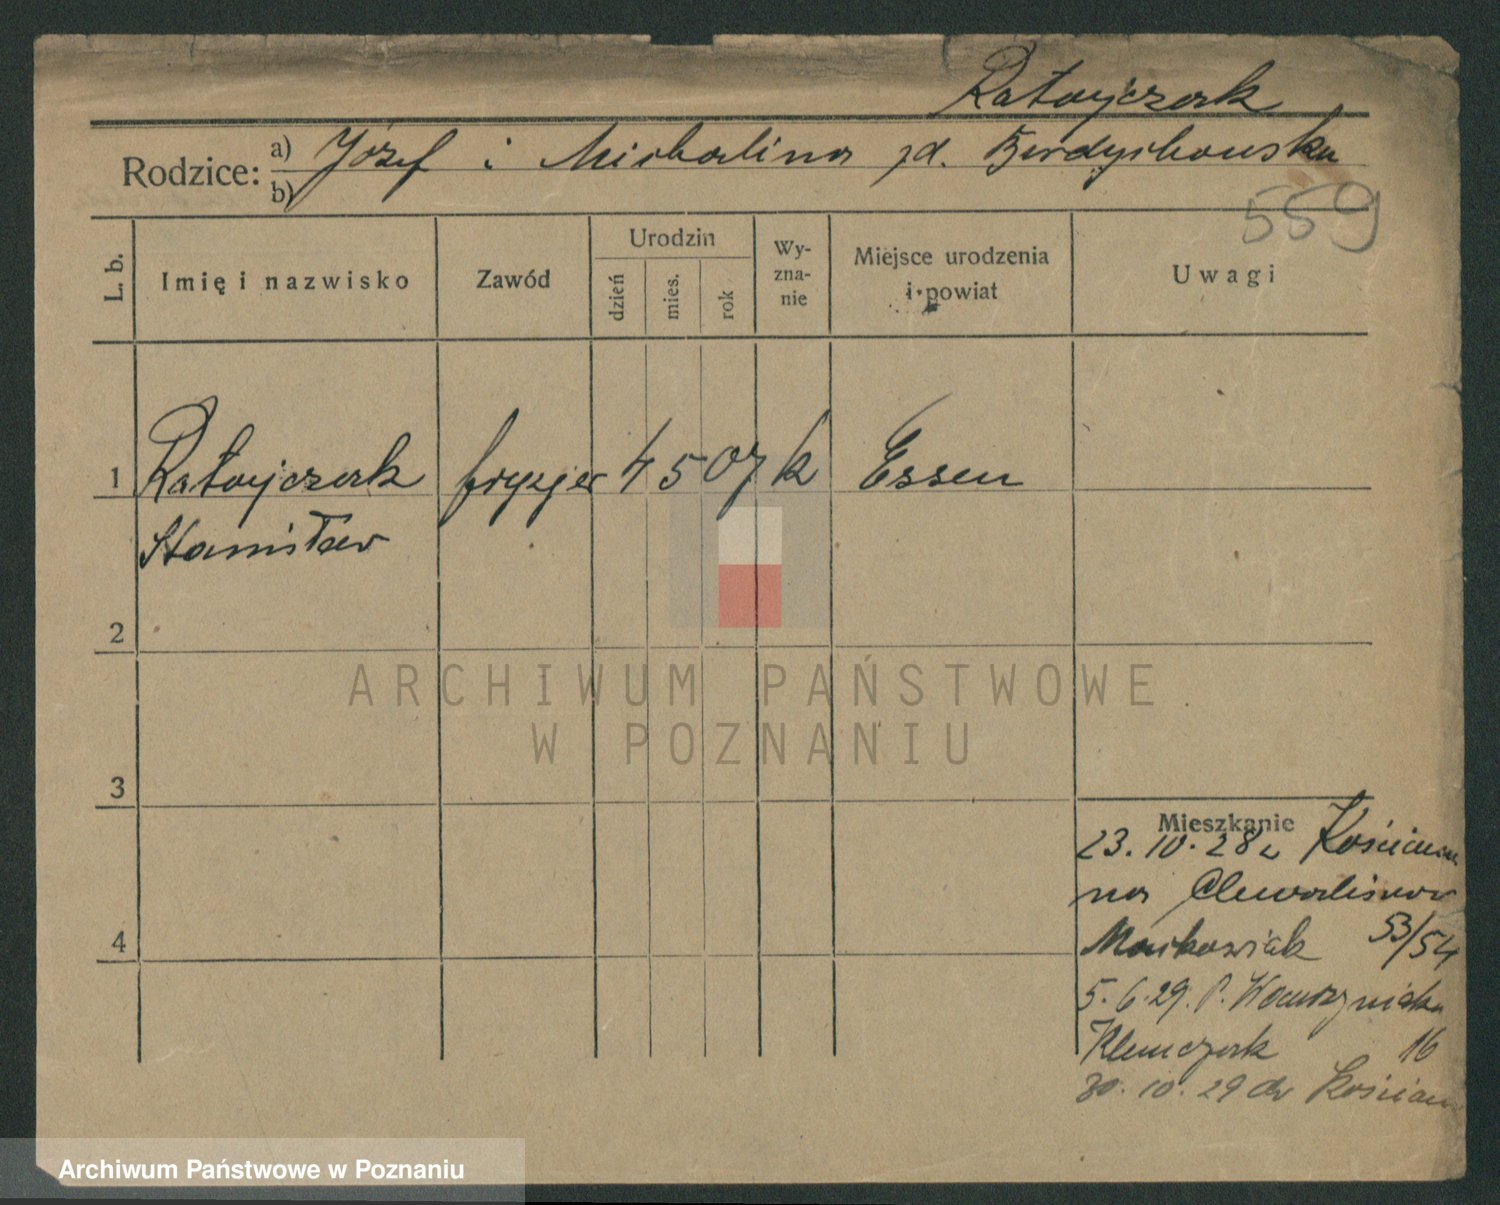 Ratajczak
Rodzice: a) Józef i Michalina zd. Berdychowska
b)
559
L. b.
Imię i nazwisko
Zawód
Urodzin
dzień
mies.
rok
Wy-
zna-
nie
Miejsce urodzenia
i powiat
Uwagi
1 Ratajczak fryzjer 4 5 07 k Essen
Stanisław
2
3
4
Mieszkanie
23.10.28 z Kościana
na
Maćkowiak 53/54
5.6.29. P. Wawrzyniaka
Klemczak 16
30.10.29 do Kościan
ARCHIWUM PAŃSTWOWE
W POZNANIU
Archiwum Państwowe w Poznaniu